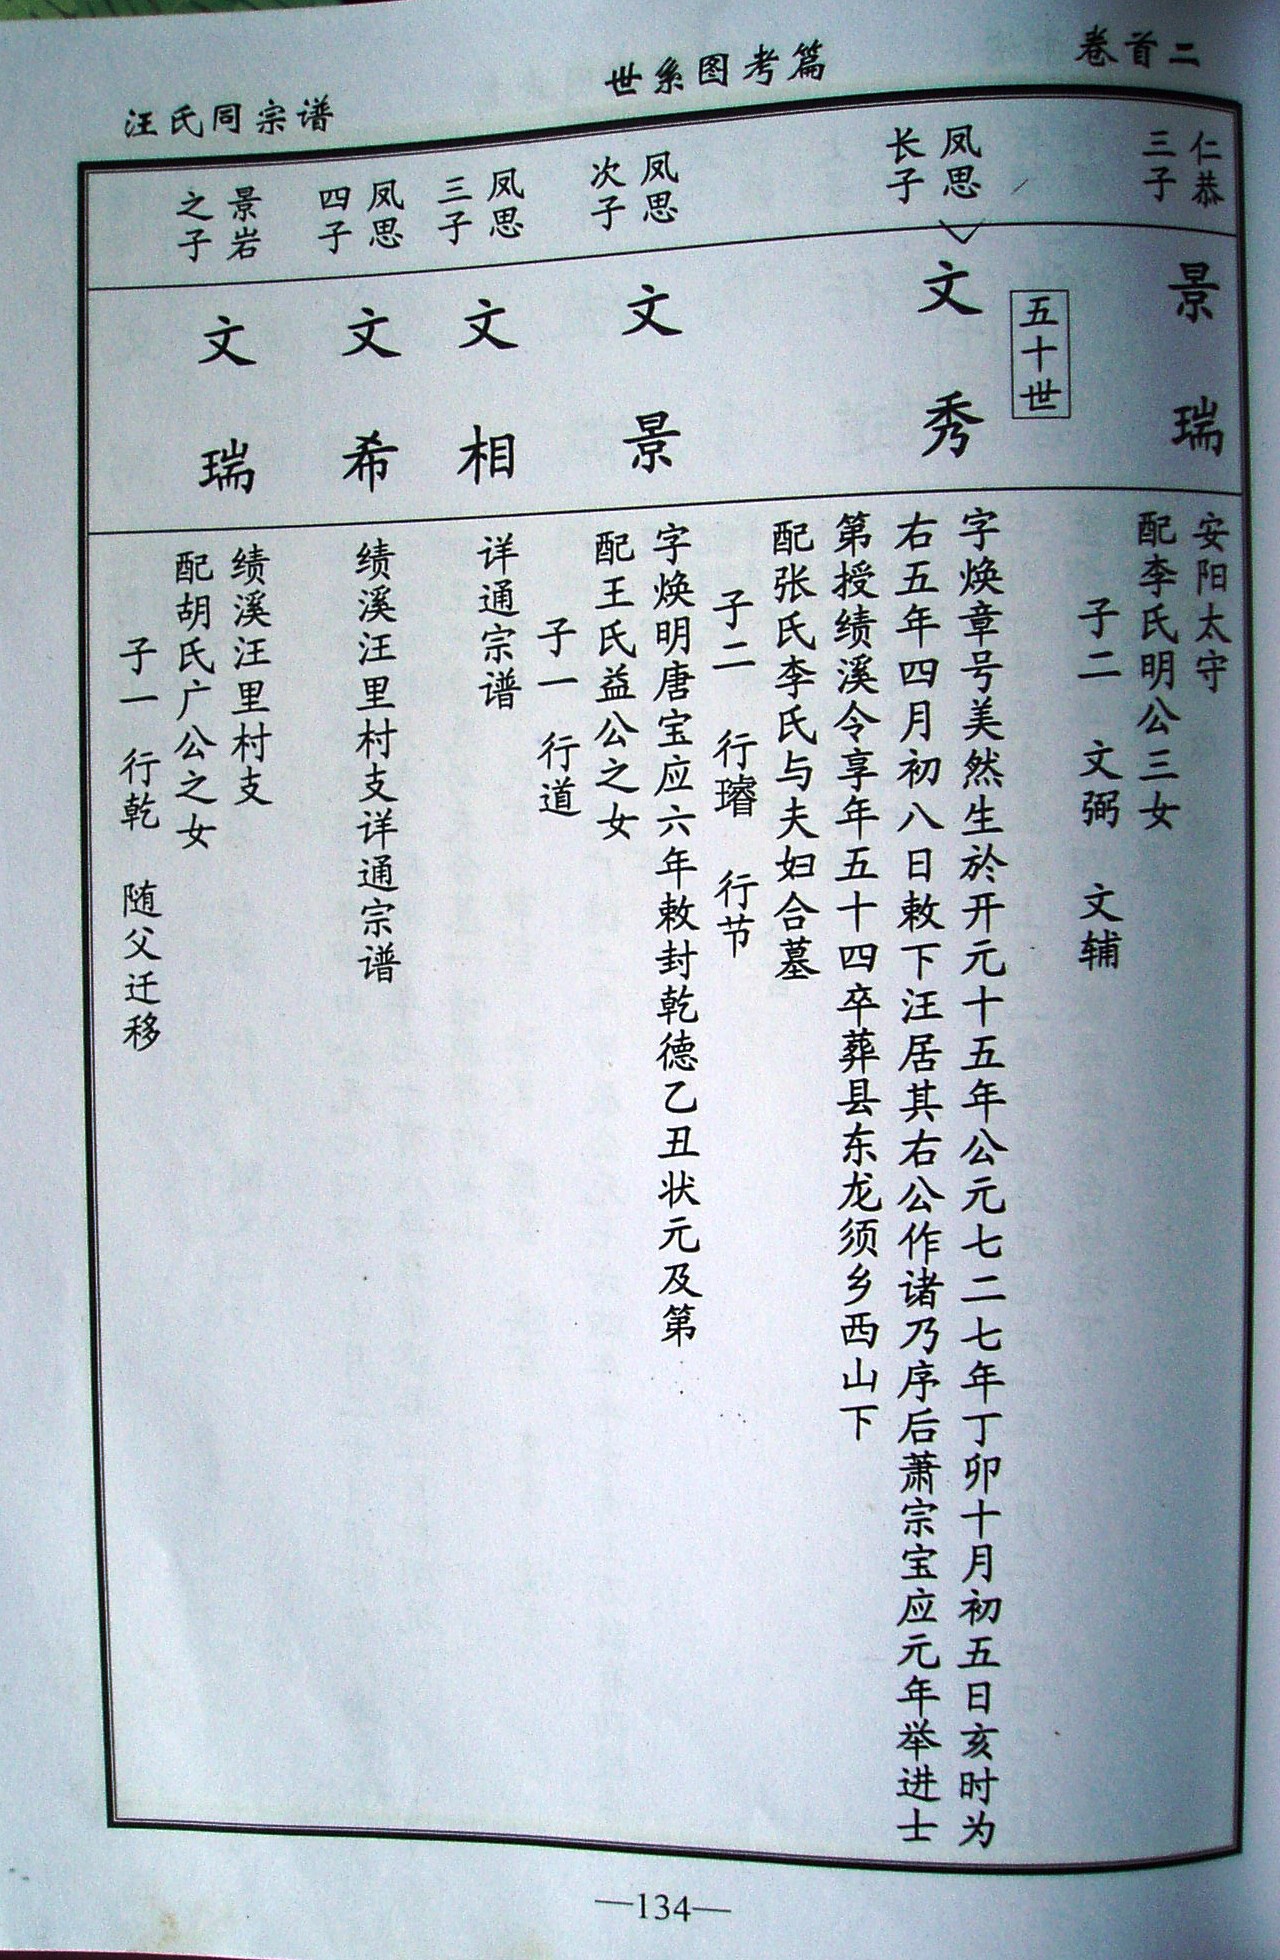 卷首二
世系图考篇
汪氏同宗谱
仁恭
三子
景瑞
安阳太守
配李氏明公三女
子二 文弼 文辅
五十世
凤思
长子
文秀
字焕章号美然生於开元十五年公元七二七年丁卯十月初五日亥时为
右五年四月初八日敕下汪居其右公作诸乃序后萧宗宝应元年举进士
第授绩溪令享年五十四卒葬县东龙须乡西山下
配张氏李氏与夫妇合墓
子二 行璿 行节
凤思
次子
文景
字焕明唐宝应六年敕封乾德乙丑状元及第
配王氏益公之女
子一 行道
凤思
三子
文相
详通宗谱
凤思
四子
文希
绩溪汪里村支详通宗谱
景岩
之子
文瑞
绩溪汪里村支
配胡氏广公之女
子一 行乾 随父迁移
—134—